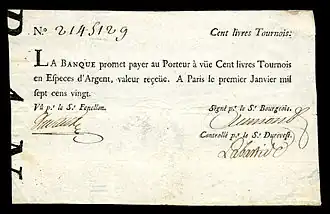 N.o 2145129 Cent livres Tournois.
LA BANQUE promet payer au Porteur à vüe Cent livres Tournois
en Especes d'Argent, valeur reçeüe. A Paris le premier Janvier mil
sept cens vingt.
Vû p.r le S.r Fenellon. Signé p.r le S.r Bourgeois.
Controllé p.r le S.r Durevest.